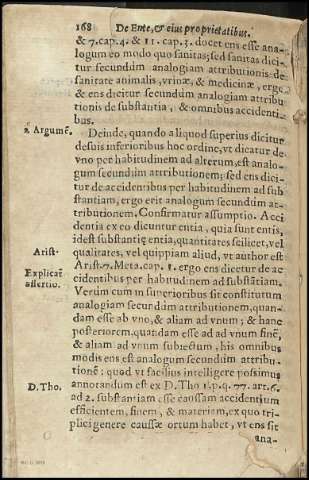 168 De Ente, & eius proprietatibus.
& 7. cap. 4. & 11. cap. 3. docet ens esse ana-
logum eo modo quo sanitas; sed sanitas dici-
tur secundum analogiam attributionis de
sanitate animalis, vrinæ, & medicinæ, ergo
& ens dicitur secundum analogiam attribu
tionis de substantia, & omnibus accidenti-
bus.
2. Argumẽ. Deinde, quando aliquod superius dicitur
de suis inferioribus hoc ordine, vt dicatur de
vno per habitudinem ad alterum, est analo-
gum secundum attributionem; sed ens dici-
tur de accidentibus per habitudinem ad sub
stantiam, ergo erit analogum secundum at-
tributionem. Confirmatur assumptio. Acci
dentia ex eo dicuntur entia, quia sunt entis,
idest substantię entia, quantitates scilicet, vel
Arist. qualitates, vel quippiam aliud, vt author est
Arist. 7. Meta. cap. 1. ergo ens dicetur de ac
Explicat̃ assertio. cidentibus per habitudinem ad substãtiam.
Verum cum in superioribus sit constitutum
analogiam secundum attributionem, quan-
dam esse ab vno, & aliam ad vnum; & hanc
posteriorem, quandam esse ad ad vnum finẽ,
& aliam ad vnum subiectum, his omnibus
modis ens est analogum secundum attribu-
tionẽ: quod vt facilius intelligere possimus
D. Tho. annotandum est ex D. Tho 1. p. q. 77. art. 6.
ad 2. substantiam esse caussam accidentium
efficientem, finem, & materiam, ex quo tri-
plici genere caussæ ortum habet, vt ens sit
ana-